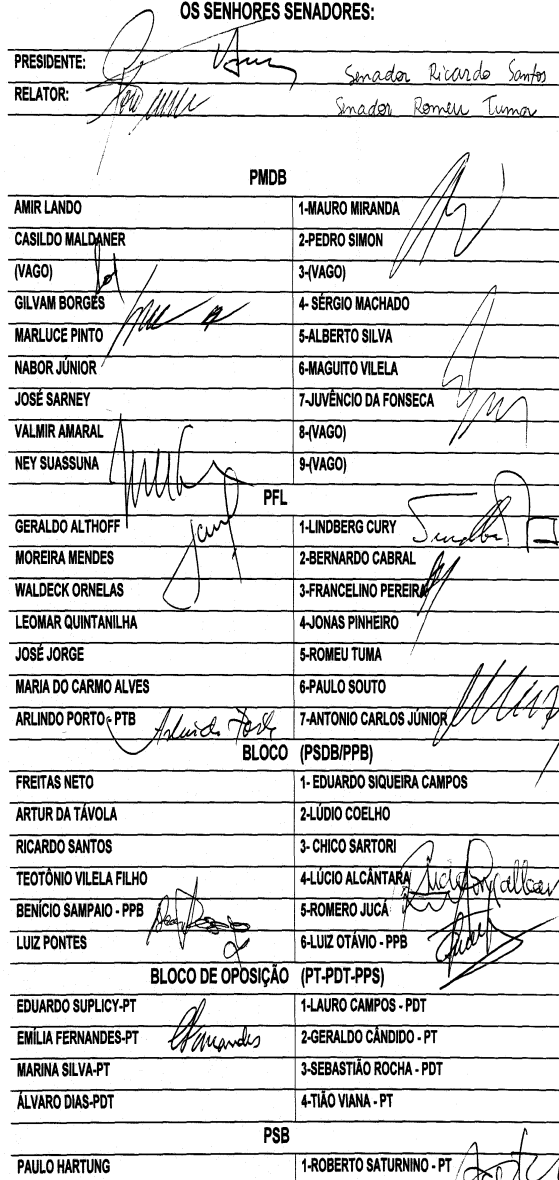 OS SENHORES SENADORES:
PRESIDENTE: Senador Ricardo Santos
RELATOR: Senador Romeu Tuma
PMDB
AMIR LANDO 1-MAURO MIRANDA
CASILDO MALDANER 2-PEDRO SIMON
(VAGO) 3-(VAGO)
GILVAM BORGES 4- SÉRGIO MACHADO
MARLUCE PINTO 5-ALBERTO SILVA
NABOR JÚNIOR 6-MAGUITO VILELA
JOSÉ SARNEY 7-JUVÊNCIO DA FONSECA
VALMIR AMARAL 8-(VAGO)
NEY SUASSUNA 9-(VAGO)
PFL
GERALDO ALTHOFF 1-LINDBERG CURY
MOREIRA MENDES 2-BERNARDO CABRAL
WALDECK ORNELAS 3-FRANCELINO PEREIRA
LEOMAR QUINTANILHA 4-JONAS PINHEIRO
JOSÉ JORGE 5-ROMEU TUMA
MARIA DO CARMO ALVES 6-PAULO SOUTO
ARLINDO PORTO - PTB Arlindo Porto 7-ANTONIO CARLOS JÚNIOR
BLOCO (PSDB/PPB)
FREITAS NETO 1- EDUARDO SIQUEIRA CAMPOS
ARTUR DA TÁVOLA 2-LÚDIO COELHO
RICARDO SANTOS 3- CHICO SARTORI
TEOTÔNIO VILELA FILHO 4-LÚCIO ALCÂNTARA
BENÍCIO SAMPAIO - PPB 5-ROMERO JUCÁ
LUIZ PONTES 6-LUIZ OTÁVIO - PPB
BLOCO DE OPOSIÇÃO (PT-PDT-PPS)
EDUARDO SUPLICY-PT 1-LAURO CAMPOS - PDT
EMÍLIA FERNANDES-PT 2-GERALDO CÂNDIDO - PT
MARINA SILVA-PT 3-SEBASTIÃO ROCHA - PDT
ÁLVARO DIAS-PDT 4-TIÃO VIANA - PT
PSB
PAULO HARTUNG 1-ROBERTO SATURNINO - PT